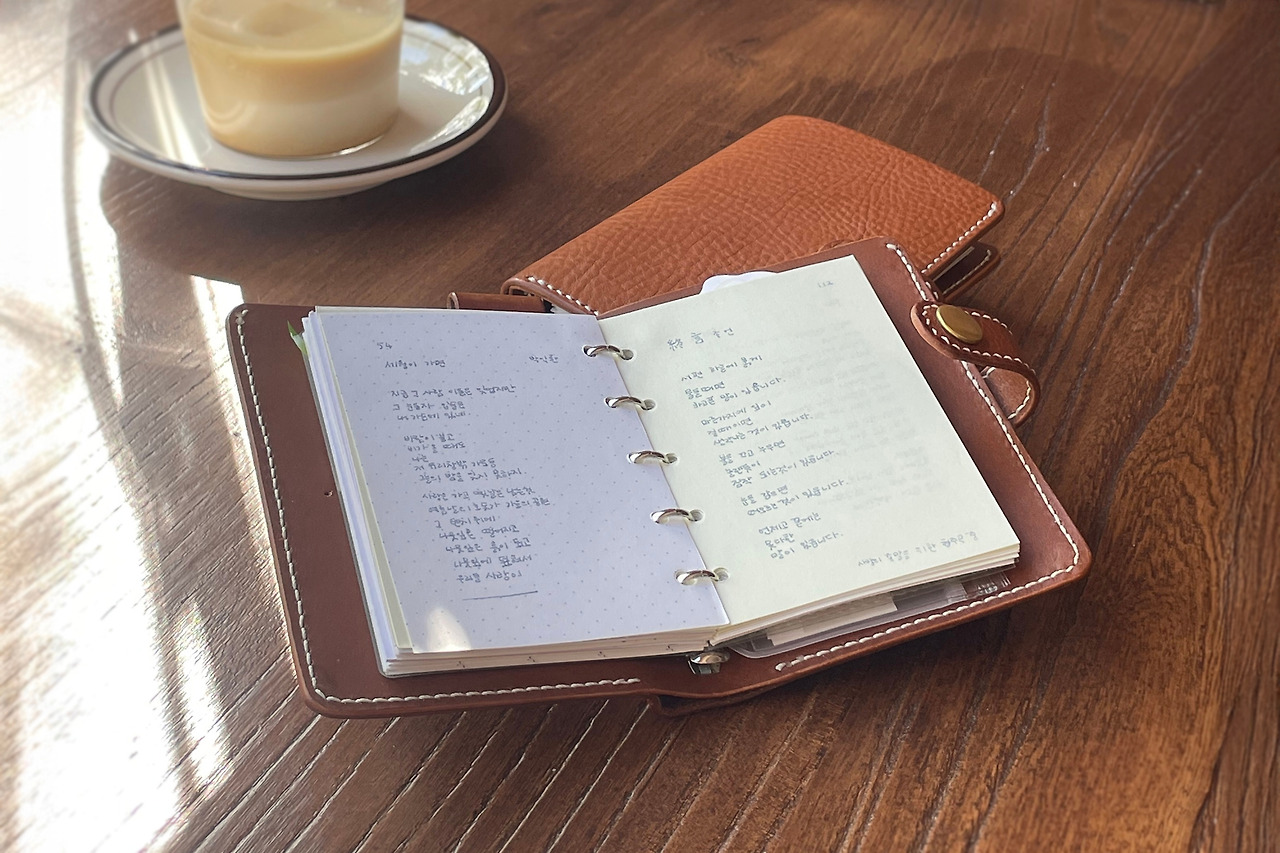 54
세월이 가면 박인환
지금 그 사람 이름은 잊었지만
그 눈동자 입술은
내 가슴에 있네
바람이 불고
비가 올 때도
나는
저 유리창밖 가로등
그늘의 밤을 잊지 못하지
사랑은 가고 옛날은 남는것
여름날의 호숫가 가을의 공원
그 벤치위에
나뭇잎은 떨어지고
나뭇잎은 흙이 되고
나뭇잎에 덮여서
우리들 사랑이
112
終言 종언
서쪽 하늘에 붉게
있습니다.
마른가지에 잎이
것이 있습니다.
눈을 감고
눈을 감으면
떠오르는 것이 있습니다.
언제고 끝에는
못다한
말이 있습니다.